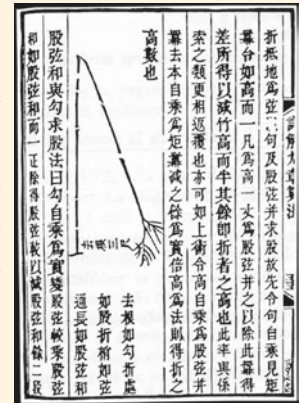 詳解九章算法
折抵地為弦以句及股弦并求股故先令句自乘見矩
冪令如高而一凡為高一丈為股弦并之以除此冪得
差所得以減竹高而半其餘即折者之高也此率與係
索之類更相返覆也亦可如上術令高自乘為股弦并
冪去本自乘為矩冪減之餘為實倍高為法則得折之
高數也
去根三尺
去根如勾折處
如股折梢如弦
通長如股弦和
股弦和與勾求股法曰勾自乘為實變股弦較乘股弦
和如股弦和而一正除得股弦較以減股弦和餘二段